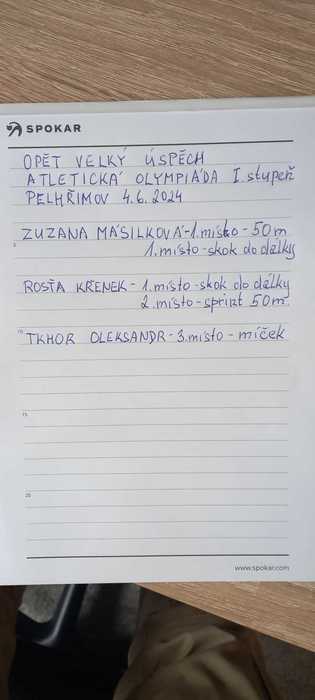 SPOKAR
OPĚT VELKÝ ÚSPĚCH
ATLETICKÁ OLYMPIÁDA I. stupeň
PELHŘIMOV 4.6.2024
ZUZANA MÁSILKOVÁ - 1. místo - 50 m
5
1. místo - skok do dálky
ROSŤA KŘENEK - 1. místo - skok do dálky
2. místo - sprint 50 m
10
TKHOR OLEKSANDR - 3. místo - míček
15
20
www.spokar.com